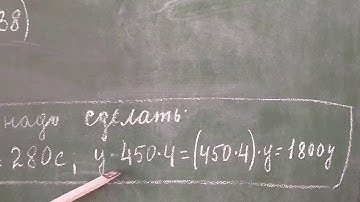 38)
надо сделать:
= 280с; у·450·4=(450·4)·у=1800у